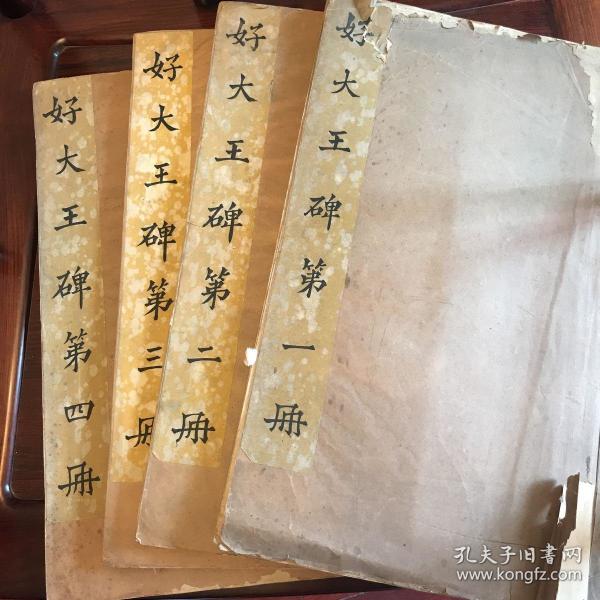 好大王碑第一冊
好大王碑第二冊
好大王碑第三冊
好大王碑第四冊
孔夫子旧書网
www.kongfz.com